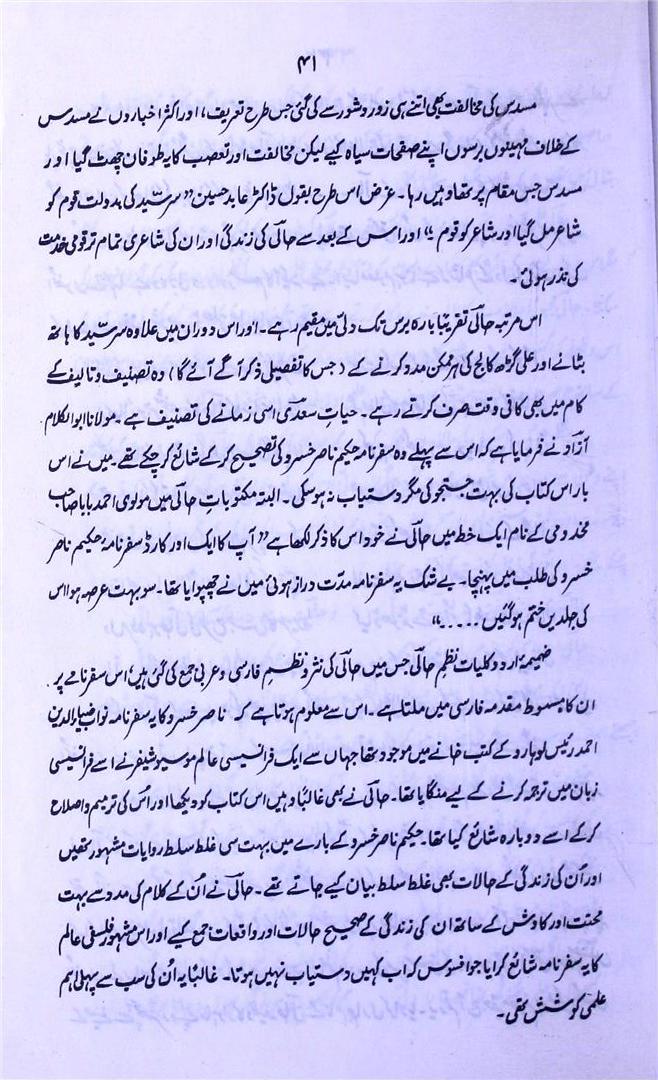 ۴۱
مسدس کی مخالفت بھی اتنے ہی زور و شور سے کی گئی جس طرح تعریف، اور اکثر اخباروں نے مسدس
کے خلاف مہینوں برسوں اپنے صفحات سیاہ کیے لیکن مخالفت اور تعصب کا یہ طوفان چھٹ گیا اور
مسدس جس مقام پر تھا وہیں رہا۔ غرض اس طرح بقول ڈاکٹر عابد حسین "سرسیّد کی بدولت قوم کو
شاعر مل گیا اور شاعر کو قوم"۔ اور اس کے بعد سے حالیؔ کی زندگی اور ان کی شاعری تمام تر قومی خدمت
کی نذر ہوئی۔
اس مرتبہ حالیؔ تقریباً بارہ برس تک دلّی میں مقیم رہے۔ اور اس دوران میں علاوہ سرسیّد کا ہاتھ
بٹانے اور علی گڑھ کالج کی ہر ممکن مدد کرنے کے (جس کا تفصیلی ذکر آگے آئے گا) وہ تصنیف و تالیف کے
کام میں بھی کافی وقت صرف کرتے رہے۔ حیاتِ سعدیؔ اسی زمانے کی تصنیف ہے۔ مولانا ابوالکلام
آزادؔ نے فرمایا ہے کہ اس سے پہلے وہ سفر نامہ حکیم ناصر خسرو کی تصحیح کرکے شائع کر چکے تھے۔ میں نے اس
بار اس کتاب کی بہت جستجو کی مگر دستیاب نہ ہوسکی۔ البتہ مکتوباتِ حالیؔ میں مولوی احمد بابا صاحب
مخدومی کے نام ایک خط میں حالیؔ نے خود اس کا ذکر لکھا ہے "آپ کا ایک اور کارڈ سفر نامۂ حکیم ناصر
خسرو کی طلب میں پہنچا۔ بے شک یہ سفر نامہ مدّت دراز ہوئی میں نے چھپوایا تھا۔ سو بہت عرصہ ہوا اس
کی جلدیں ختم ہوگئیں ....."
ضمیمہ اردو کلیات نظمِ حالیؔ جس میں حالیؔ کی نثر و نظمِ فارسی و عربی جمع کی گئی ہیں، اس سفرنامے پر
ان کا مبسوط مقدمہ فارسی میں ملتا ہے۔ اس سے معلوم ہوتا ہے کہ ناصر خسرو کا یہ سفر نامہ نواب ضیاء الدین
احمد رئیس لوہارو کے کتب خانے میں موجود تھا جہاں سے ایک فرانسیسی عالم موسیو شیفر نے اسے فرانسیسی
زبان میں ترجمہ کرنے کے لیے منگایا تھا۔ حالیؔ نے بھی غالباً وہیں اس کتاب کو دیکھا اور اُس کی ترمیم و اصلاح
کرکے اسے دوبارہ شائع کیا تھا۔ حکیم ناصر خسرو کے بارے میں بہت سی غلط سلط روایات مشہور تھیں
اور اُن کی زندگی کے حالات بھی غلط سلط بیان کیے جاتے تھے۔ حالیؔ نے اُن کے کلام کی مدد سے بہت
محنت اور کاوش کے ساتھ ان کی زندگی کے صحیح حالات اور واقعات جمع کیے اور اس مشہور فلسفی عالم
کا یہ سفر نامہ شائع کرایا جو افسوس کہ اب کہیں دستیاب نہیں ہوتا۔ غالباً یہ اُن کی سب سے پہلی اہم
علمی کوشش تھی۔